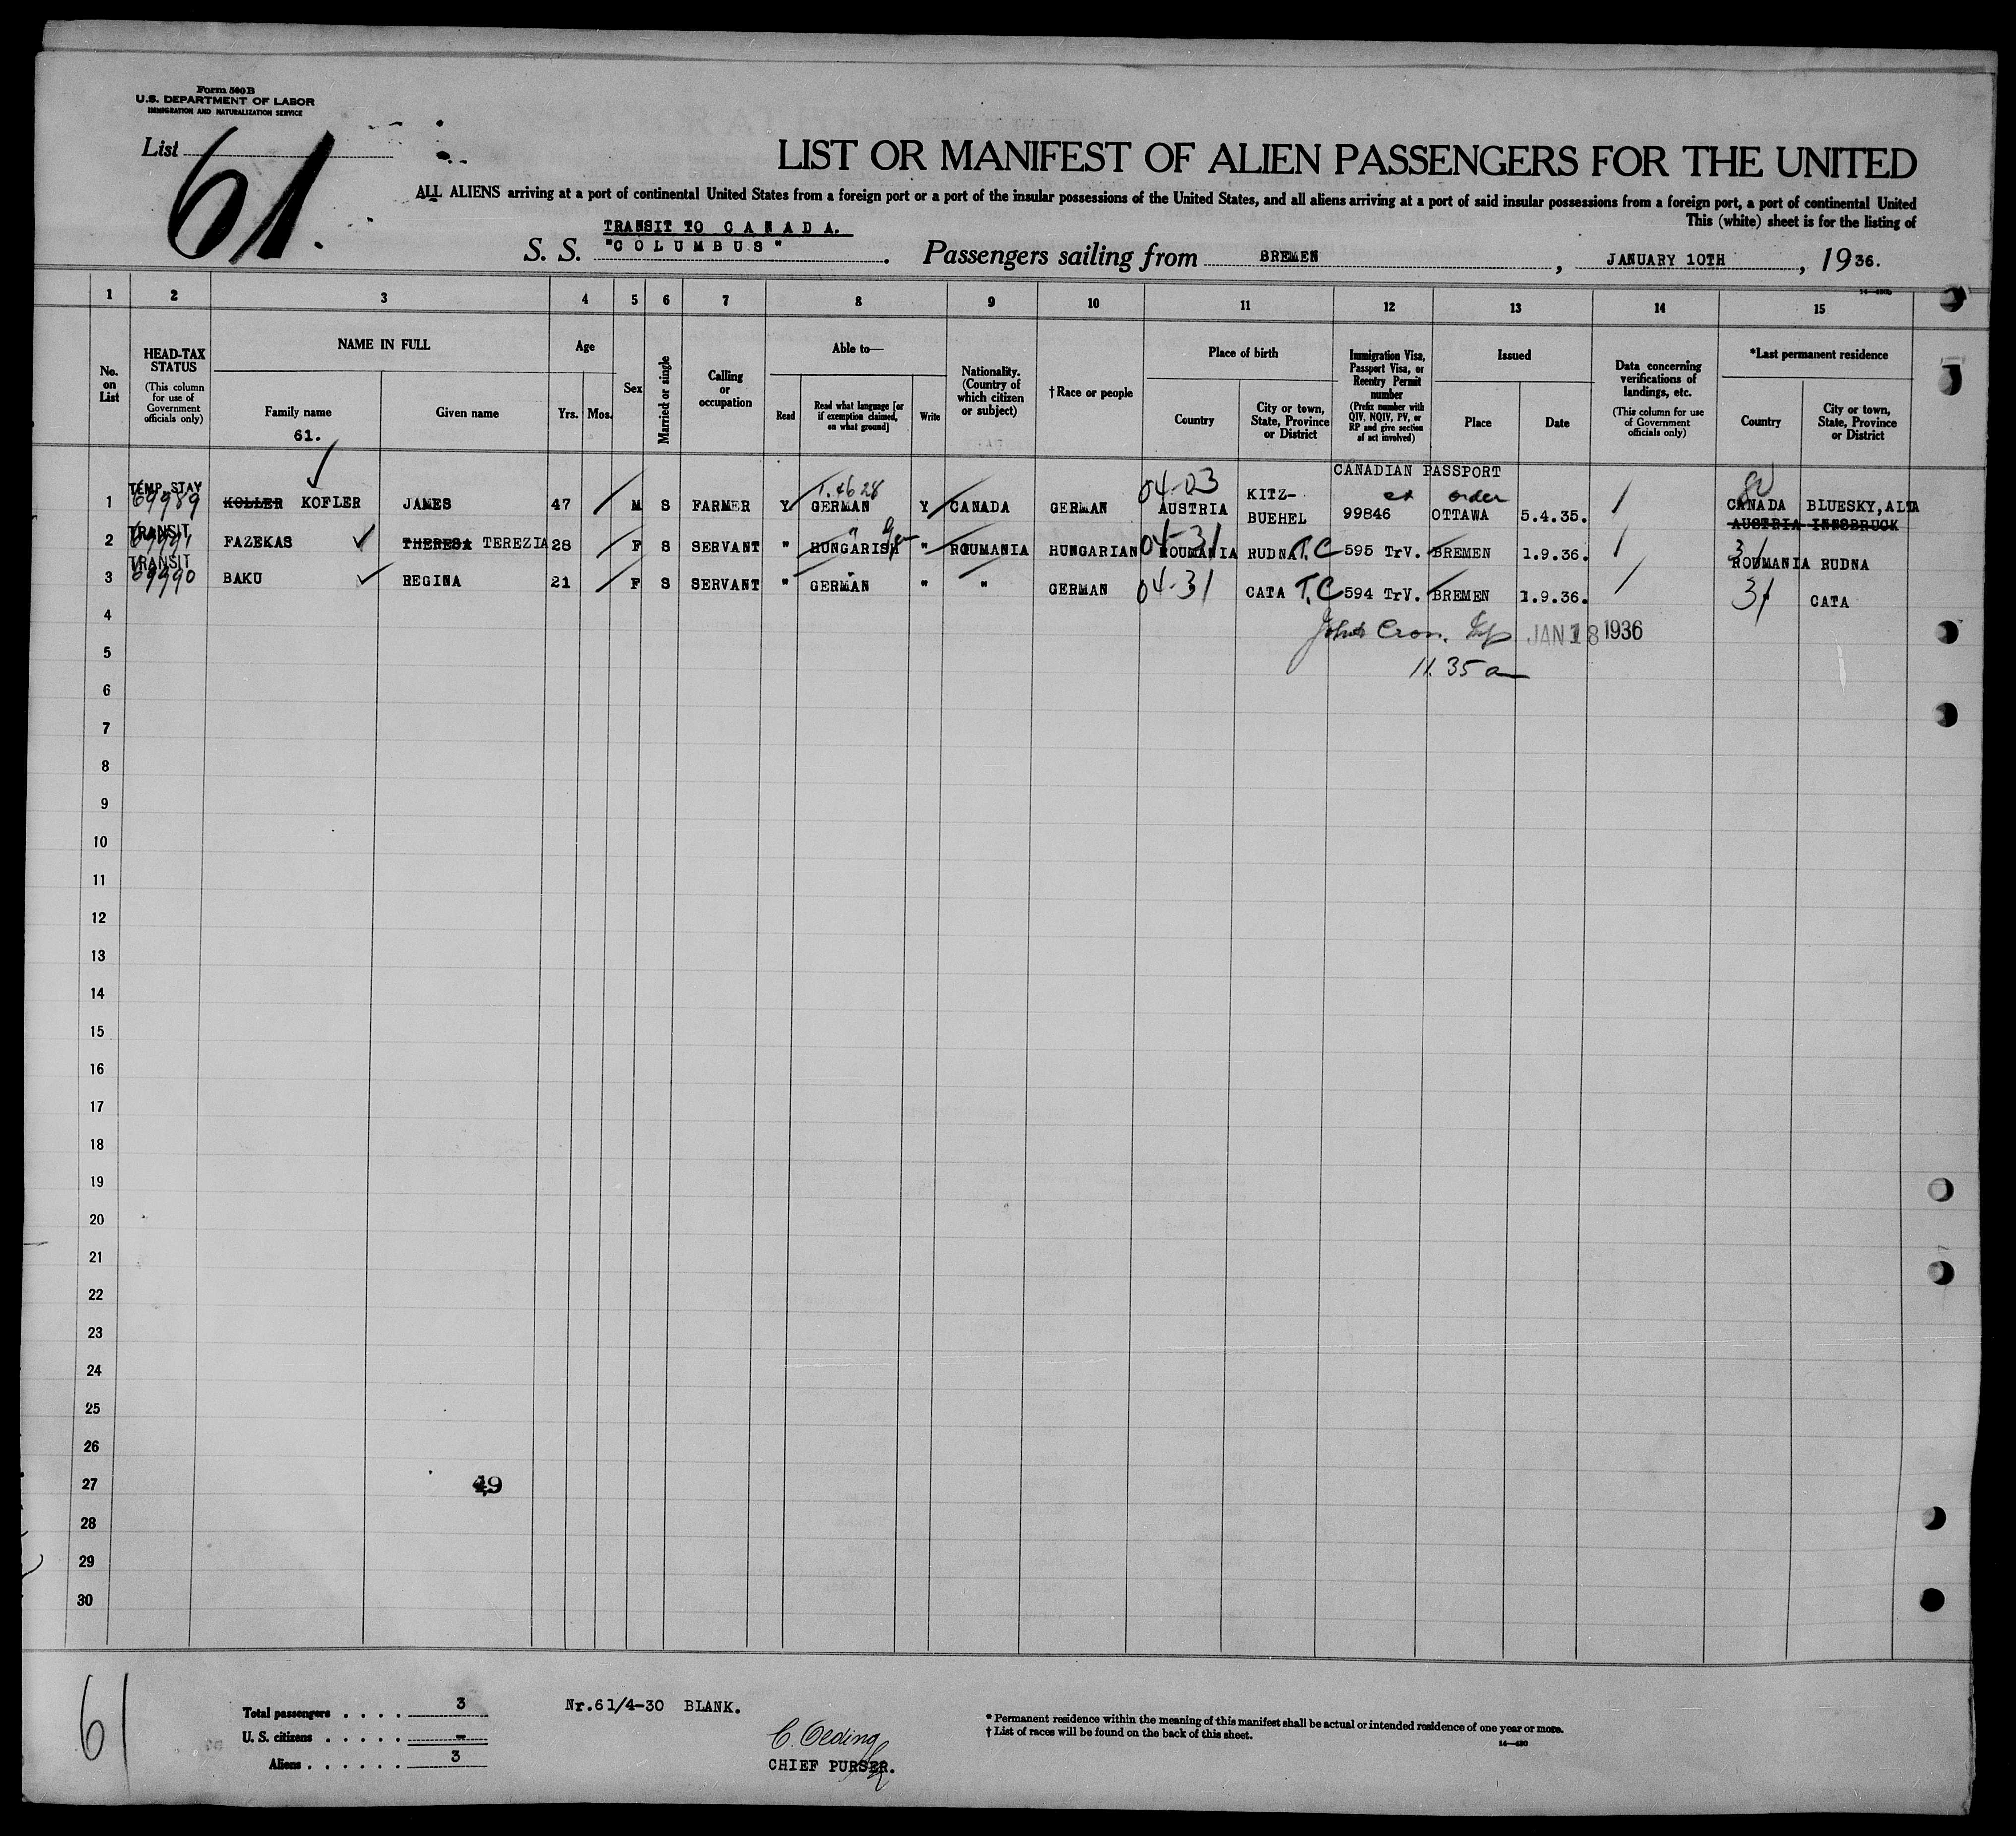 Form 500 B
U.S. DEPARTMENT OF LABOR
IMMIGRATION AND NATURALIZATION SERVICE
List 61.
LIST OR MANIFEST OF ALIEN PASSENGERS FOR THE UNITED
ALL ALIENS arriving at a port of continental United States from a foreign port or a port of the insular possessions of the United States, and all aliens arriving at a port of said insular possessions from a foreign port, a port of continental United
This (white) sheet is for the listing of
TRANSIT TO CANADA.
S. S. "COLUMBUS". Passengers sailing from BREMEN, JANUARY 10TH, 1936.
1 2 3 4 5 6 7 8 9 10 11 12 13 14 15
No. on List
HEAD-TAX STATUS
(This column for use of Government officials only)
NAME IN FULL
Family name
61.
Given name
Age
Yrs. Mos.
Sex
Married or single
Calling or occupation
Able to—
Read
Read what language [or if exemption claimed, on what ground]
Write
Nationality. (Country of which citizen or subject)
† Race or people
Place of birth
Country
City or town, State, Province or District
Immigration Visa, Passport Visa, or Reentry Permit number
(Prefix number with QIV, NQIV, PV, or RP and give section of act involved)
Issued
Place
Date
Data concerning verifications of landings, etc.
(This column for use of Government officials only)
*Last permanent residence
Country
City or town, State, Province or District
CANADIAN PASSPORT
1 TEMP STAY 69989 KOLLER KOFLER JAMES 47 M S FARMER Y GERMAN Y CANADA GERMAN 04-03 AUSTRIA KITZ-BUEHEL 99846 OTTAWA 5.4.35. CANADA BLUESKY, ALTA
AUSTRIA INNSBRUCK
2 TRANSIT 69991 FAZEKAS THERESA TEREZIA 28 F S SERVANT " HUNGARISH Ger " ROUMANIA HUNGARIAN 04-31 ROUMANIA RUDNA T.C 595 TrV. BREMEN 1.9.36. 31 ROUMANIA RUDNA
3 TRANSIT 69990 BAKU REGINA 21 F S SERVANT " GERMAN " " GERMAN 04-31 CATA T.C 594 TrV. BREMEN 1.9.36. 31 CATA
4 JAN 18 1936
5
11.35 a
6
7
8
9
10
11
12
13
14
15
16
17
18
19
20
21
22
23
24
25
26
27 49
28
29
30
61
Total passengers . . . . 3
U. S. citizens . . . . . -
Aliens . . . . . . 3
Nr.61/4-30 BLANK.
C. Oeding
CHIEF PURSER.
* Permanent residence within the meaning of this manifest shall be actual or intended residence of one year or more.
† List of races will be found on the back of this sheet.
14—430